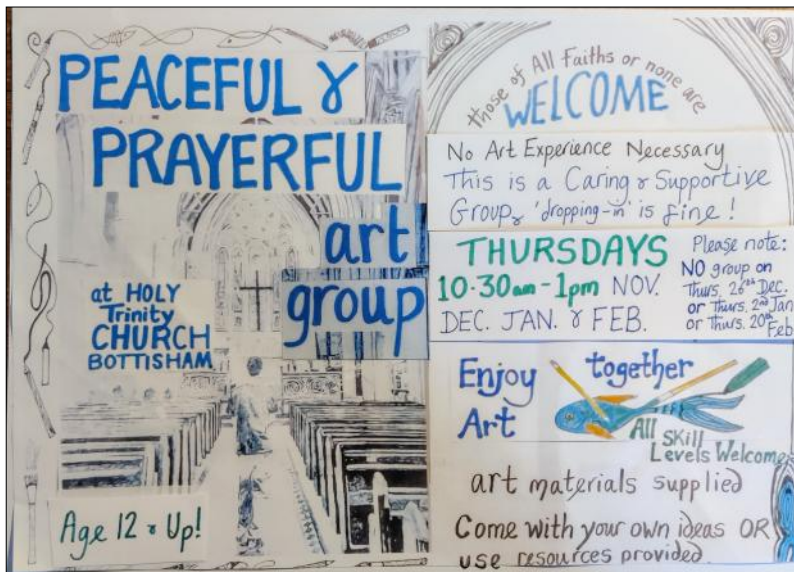 PEACEFUL &
PRAYERFUL
art
group
at HOLY
Trinity
CHURCH
BOTTISHAM
Age 12 & Up!
those of All Faiths or none are
WELCOME
No Art Experience Necessary
This is a Caring & Supportive
Group, 'dropping-in' is fine!
THURSDAYS
10·30am-1pm NOV.
DEC. JAN. & FEB.
Please note:
NO group on
Thurs. 26th Dec.
or Thurs. 2nd Jan
or Thurs. 20th
Feb
Enjoy together
Art
All Skill
Levels Welcome
art materials supplied
Come with your own ideas OR
use resources provided.